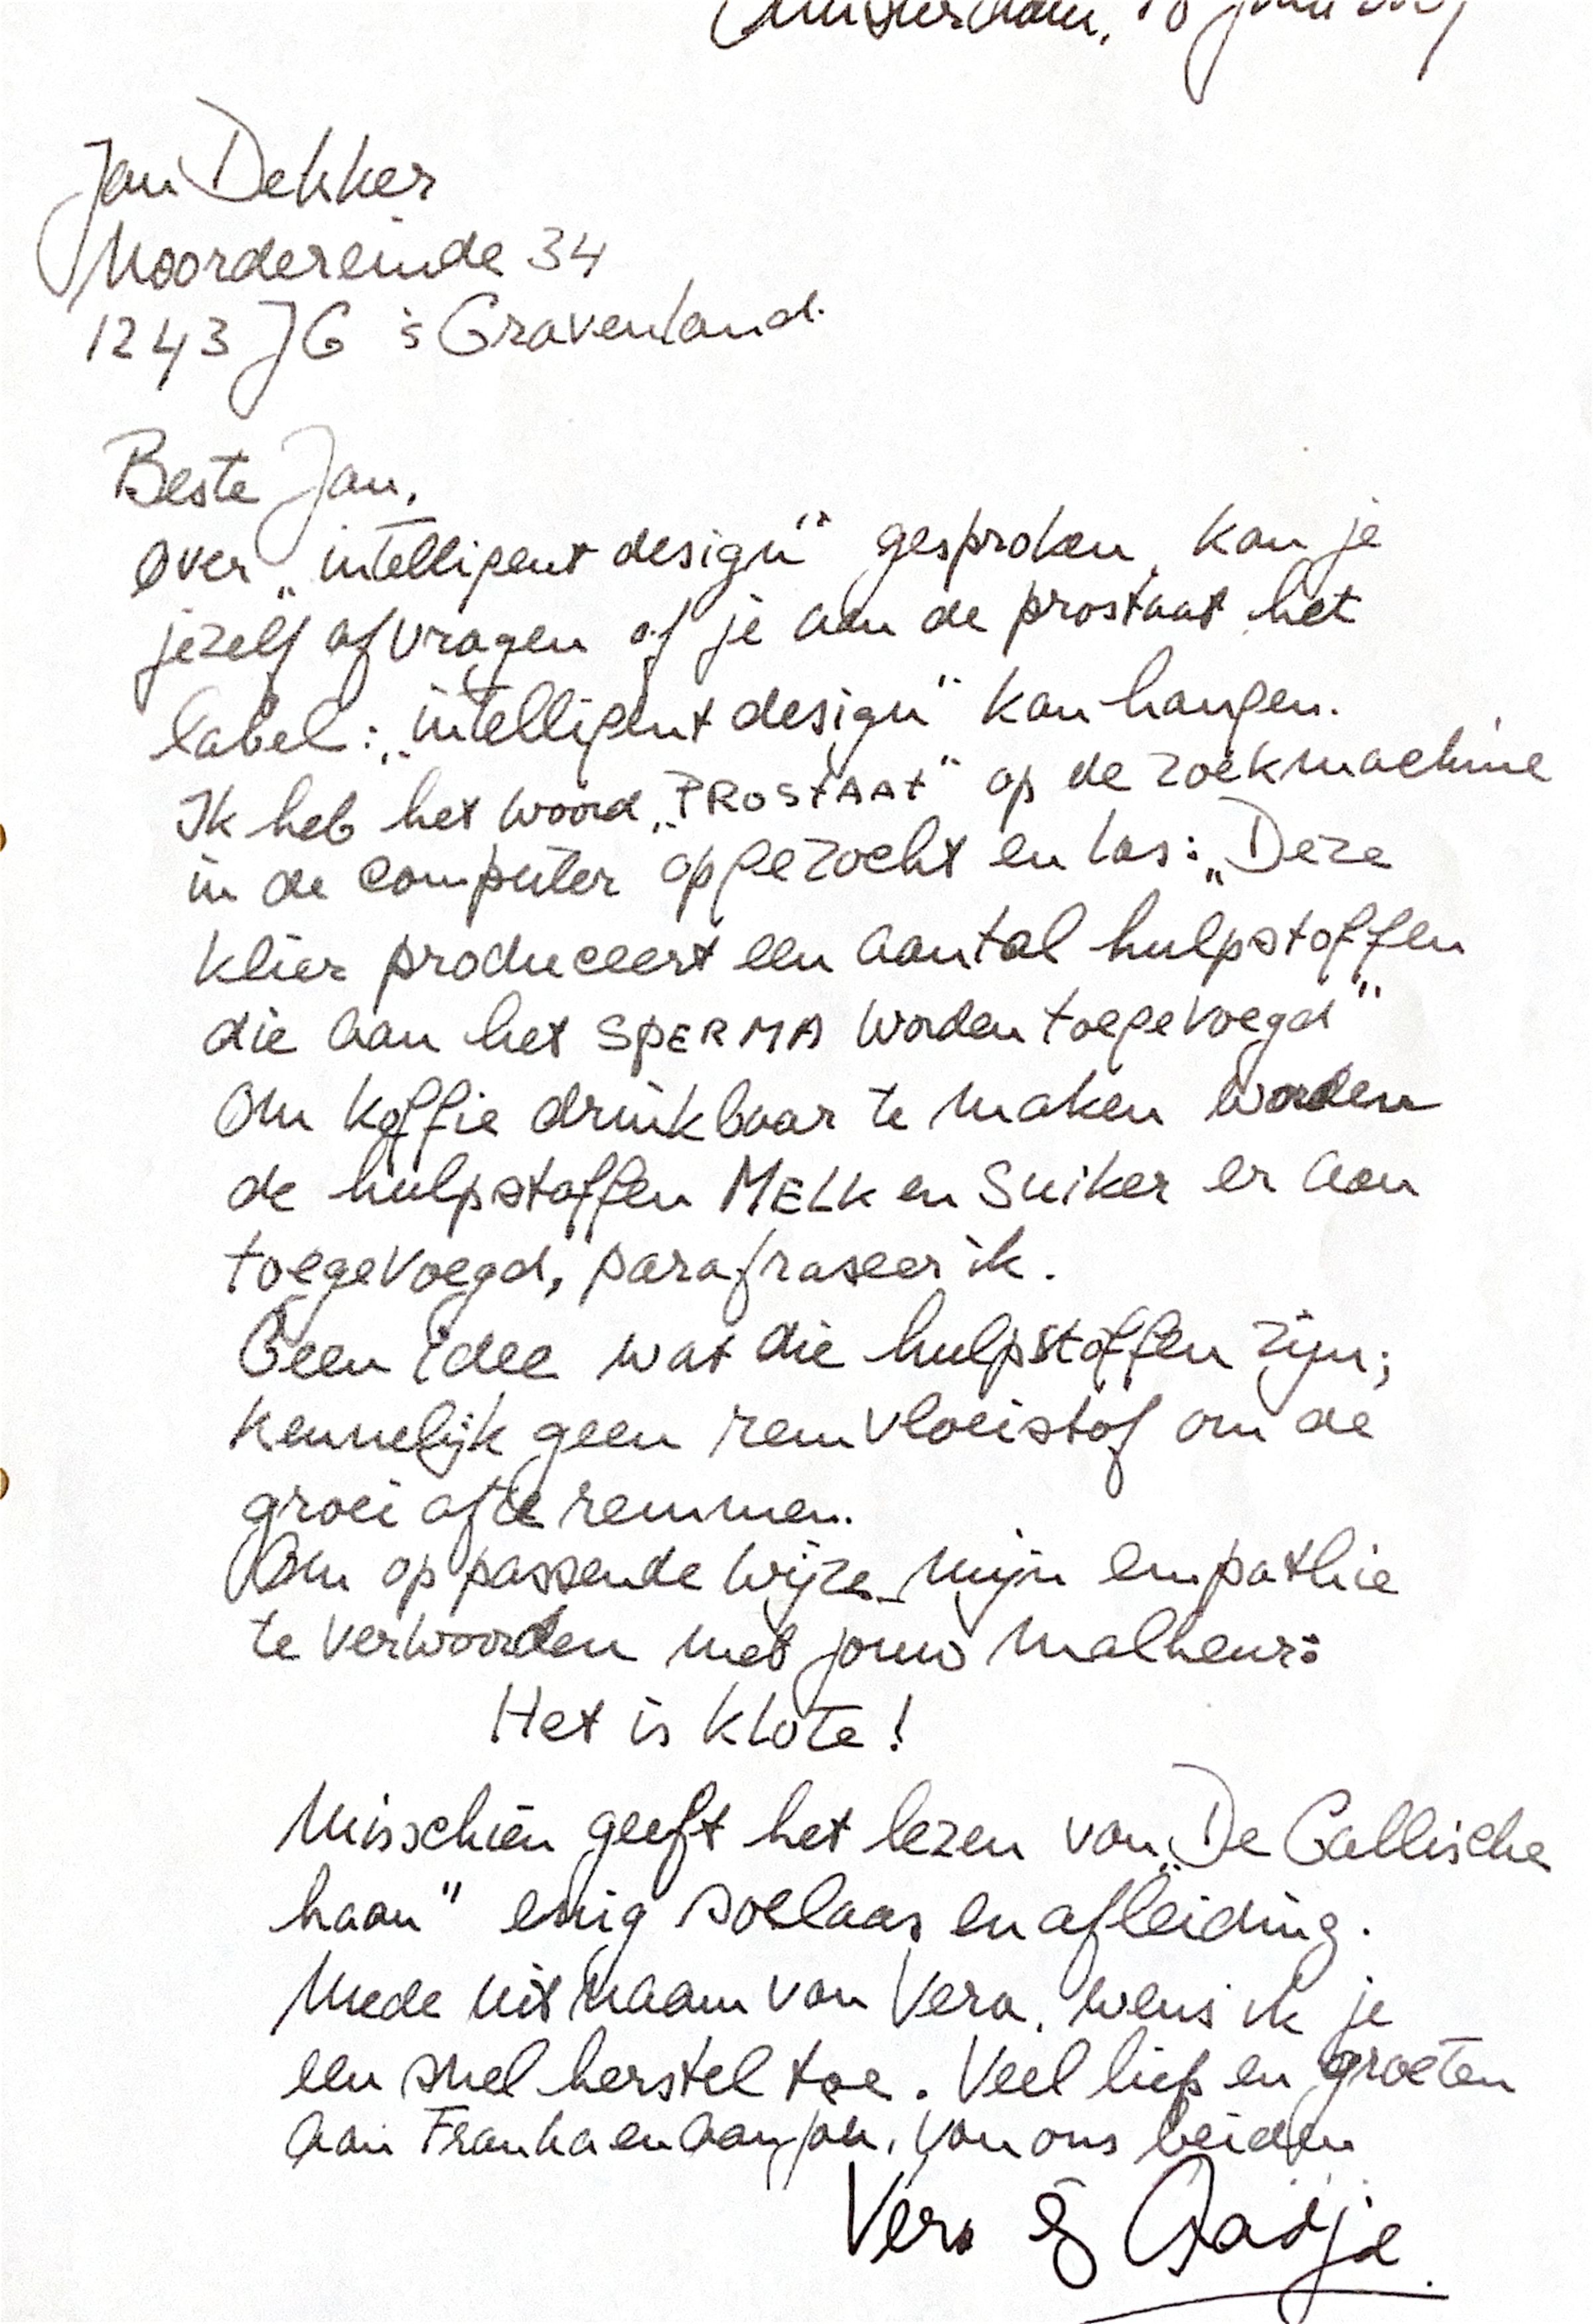 Amsterdam, 18 juni
Jan Dekker
Noordereinde 34
1243 JG 's Graveland.
Beste Jan,
Over „intelligent design" gesproken, kan je
jezelf afvragen of je aan de prostaat het
label: „intelligent design" kan hangen.
Ik heb het woord „PROSTAAT" op de zoekmachine
in de computer opgezocht en las: „Deze
klier produceert een aantal hulpstoffen
die aan het SPERMA worden toegevoegd"
Om koffie drinkbaar te maken worden
de hulpstoffen MELK en Suiker er aan
toegevoegd, parafraseer ik.
Geen idee wat die hulpstoffen zijn;
kennelijk geen remvloeistof om de
groei af te remmen.
Om op passende wijze mijn empathie
te verwoorden met jouw malheur:
Het is klote!
Misschien geeft het lezen van „De Gallische
haan" enig soelaas en afleiding.
Mede uit naam van Vera, wens ik je
een snel herstel toe. Veel liefs en groeten
aan Franka en aan jou, van ons beiden
Vera & Aadje.